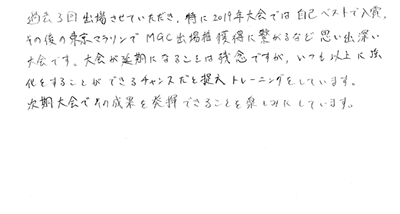 過去3回出場させていただき、特に2019年大会では自己ベストで入賞、
その後の東京マラソンでMGC出場権獲得に繋がるなど思い出深い
大会です。大会が延期になることは残念ですが、いつも以上に強
化をすることができるチャンスだと捉えトレーニングをしています。
次期大会でその成果を発揮できることを楽しみにしています。